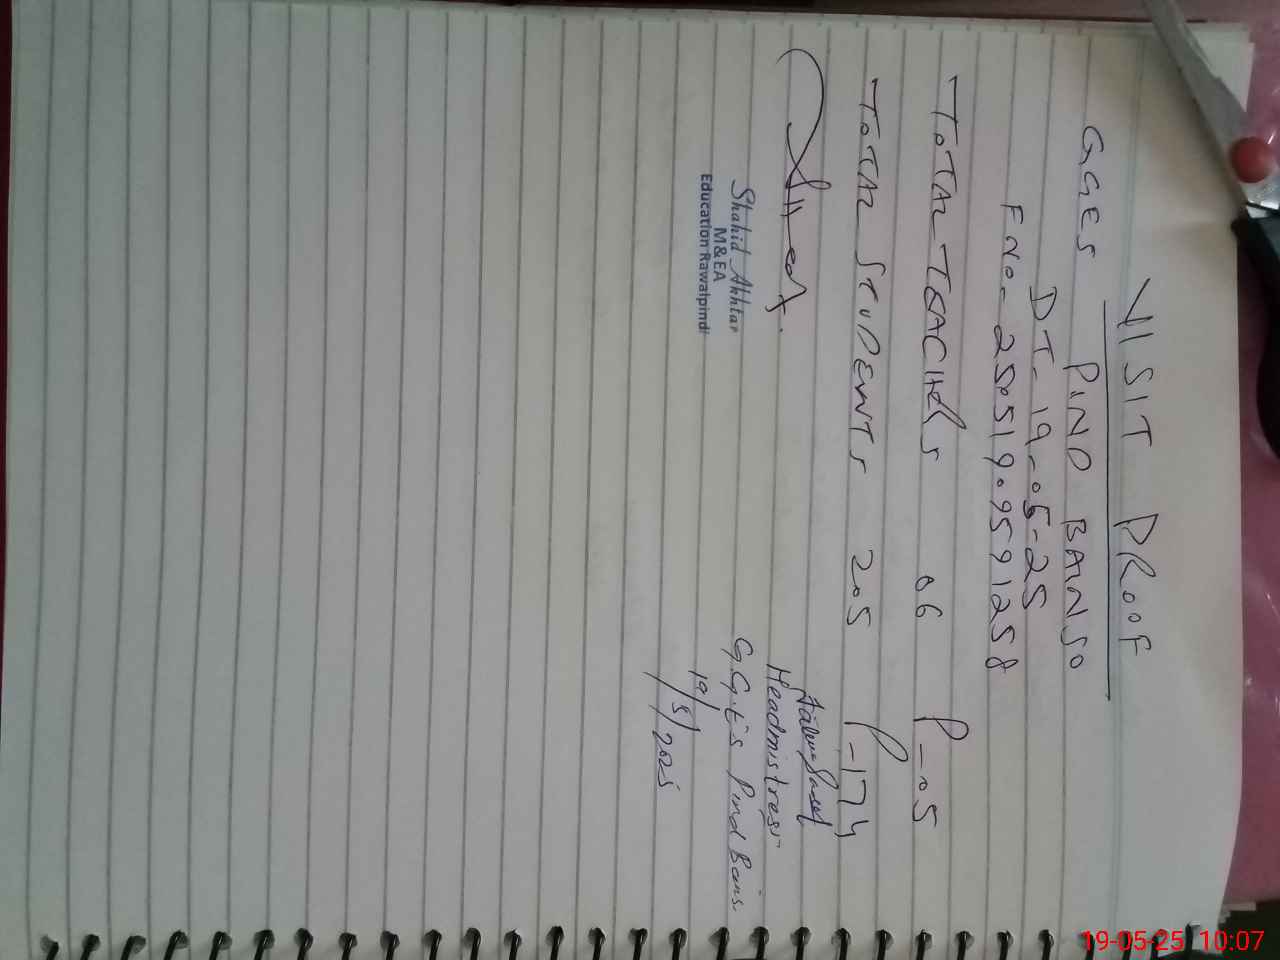 VISIT PROOF
GGES PIND BAINSO
DT- 19-05-25
F No- 25051909591258
TOTAL TEACHERS 06 P-05
TOTAL STUDENTS 205 P-174
Shahid Akhtar
M&EA
Education Rawalpindi
Headmistress
G.G.E.S Pind Bains
19/5/2025
19-05-25 10:07